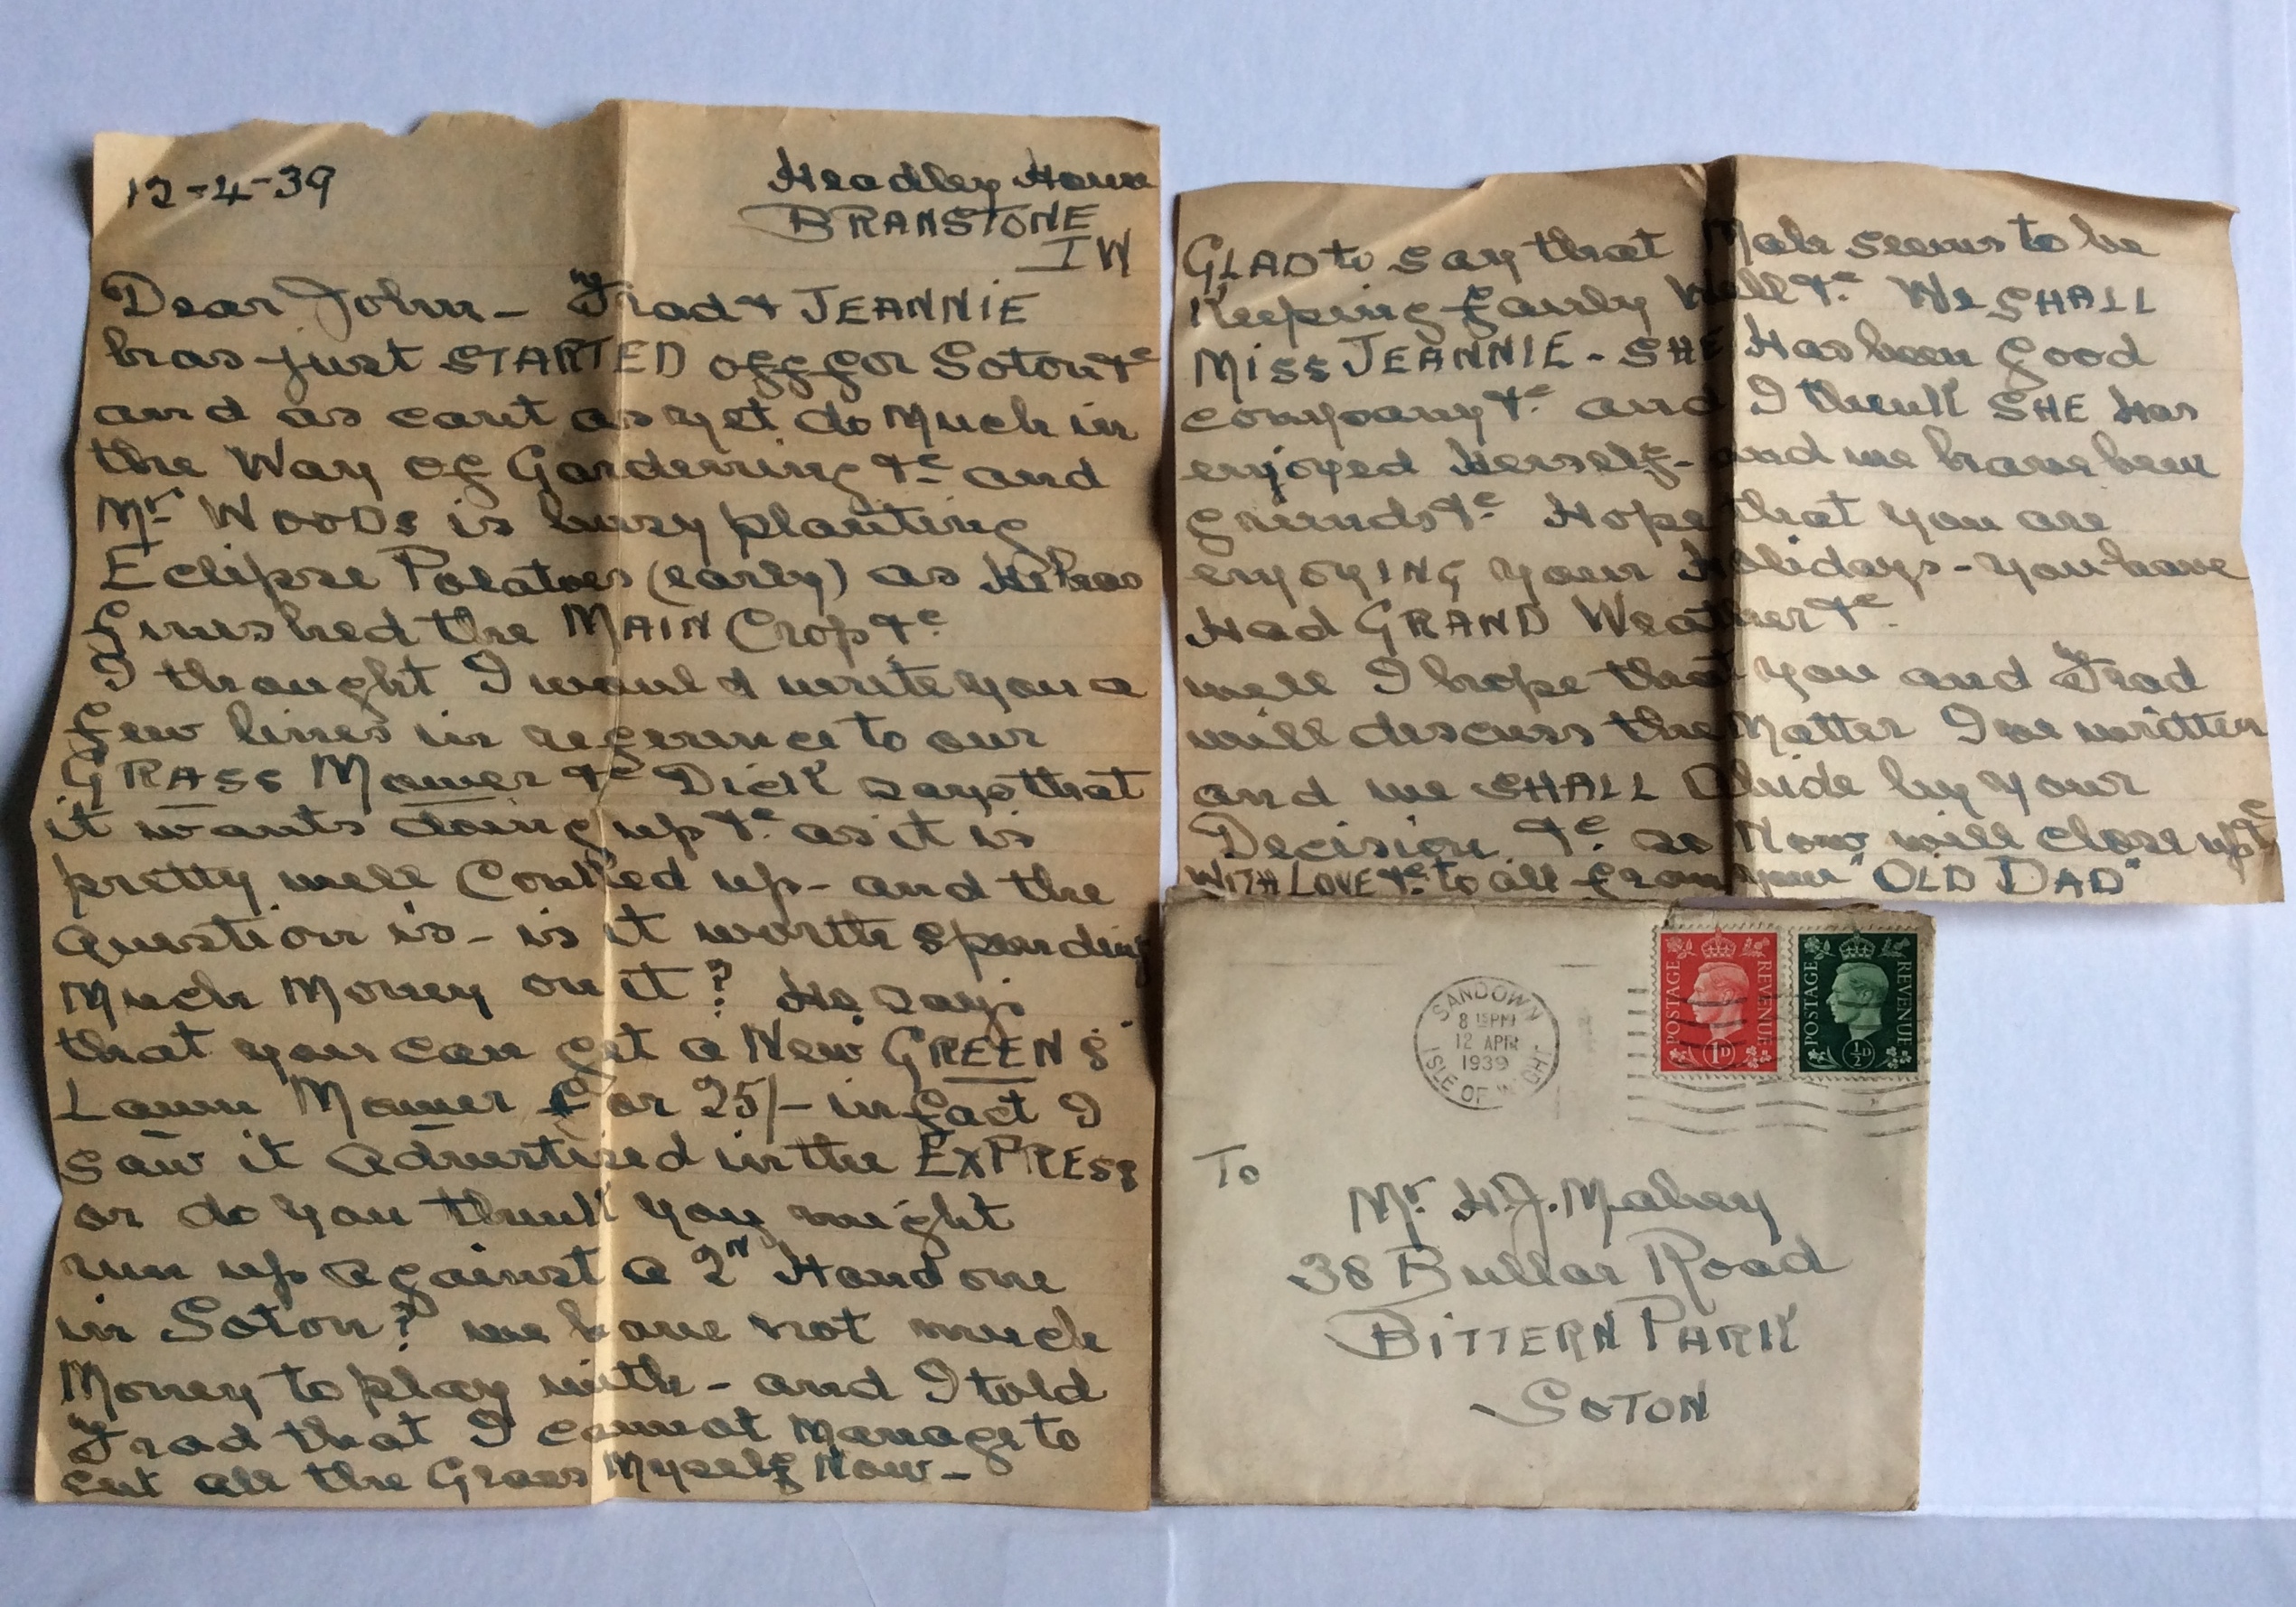 12-4-39
Headley House
BRANSTONE
I W
Dear John - Frad & JEANNIE
has just STARTED off for Soton &c
and as cant as yet do Much in
the Way of Gardening &c and
Mr WOODS is busy planting
Eclipse Potatoes (early) as He has
finished the MAIN Crop &c
I thought I would write you a
few lines in reference to our
GRASS Mower &c Dick says that
it wants doing up &c as it is
pretty well Conked up - and the
question is - is it worth spending
Much Money on it? He says
that you can get a New GREENS
Lawn Mower for 25/- in fact I
saw it advertised in the EXPRESS
or do you think you might
run up against a 2n Hand one
in Soton? we have not much
Money to play with - and I told
Frad that I cannot Manage to
cut all the Grass Myself Now -
GLAD to say that Mab seems to be
Keeping fairly Well &c We SHALL
MISS JEANNIE - SHE Has been good
company &c and I think SHE Has
enjoyed Herself - and we have been
friends &c Hope that you are
enjoyING your Holidays - you have
Had GRAND Weather &c
well I hope that you and Frad
will discuss the Matter Ive written
and we SHALL Abide by your
Decision &c so Now will close up &c
WITH LOVE &c to all from your "OLD DAD"
SANDOWN
8 15PM
12 APR
1939
ISLE OF WIGHT
POSTAGE REVENUE
1D
POSTAGE REVENUE
½D
To
Mr H.J. Mabey
38 Bullar Road
BITTERN PARK
SOTON